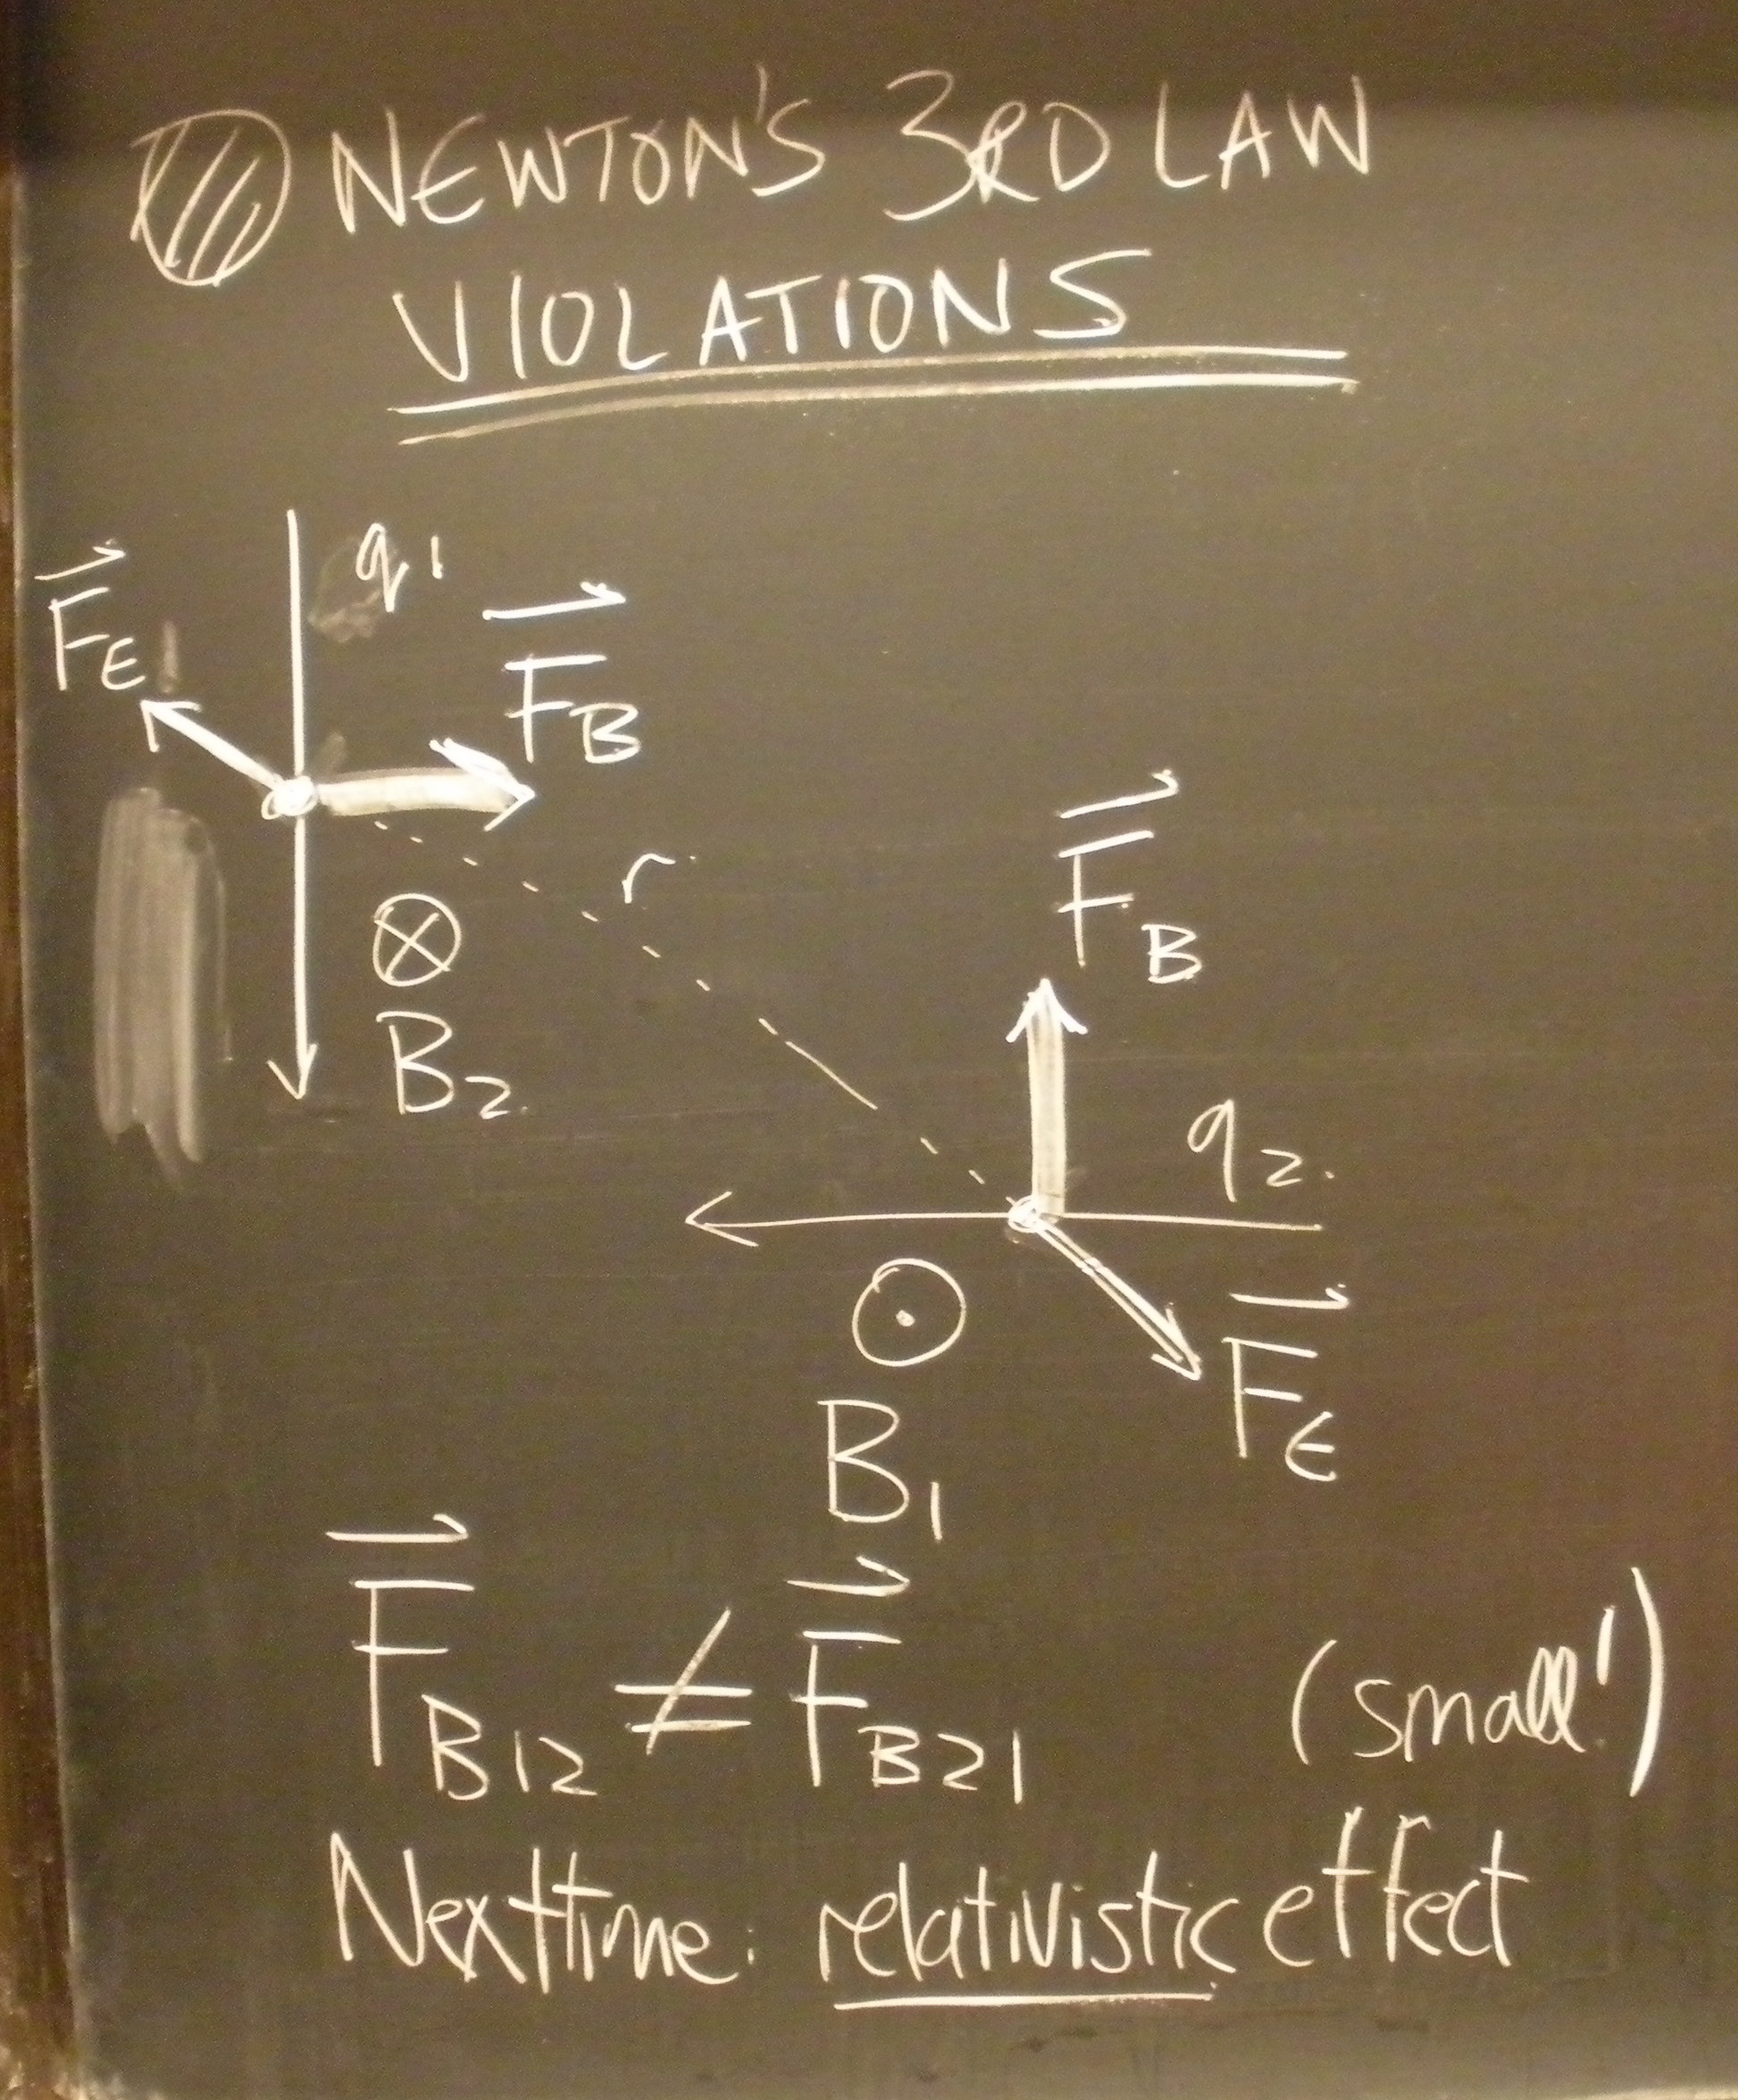 NEWTON'S 3RD LAW
VIOLATIONS
q1
F⃗E
F⃗B
r
⊗
B2
F⃗B
q2
⊙
B1
F⃗E
F⃗B12 ≠ F⃗B21 (small!)
Next time: relativistic effect